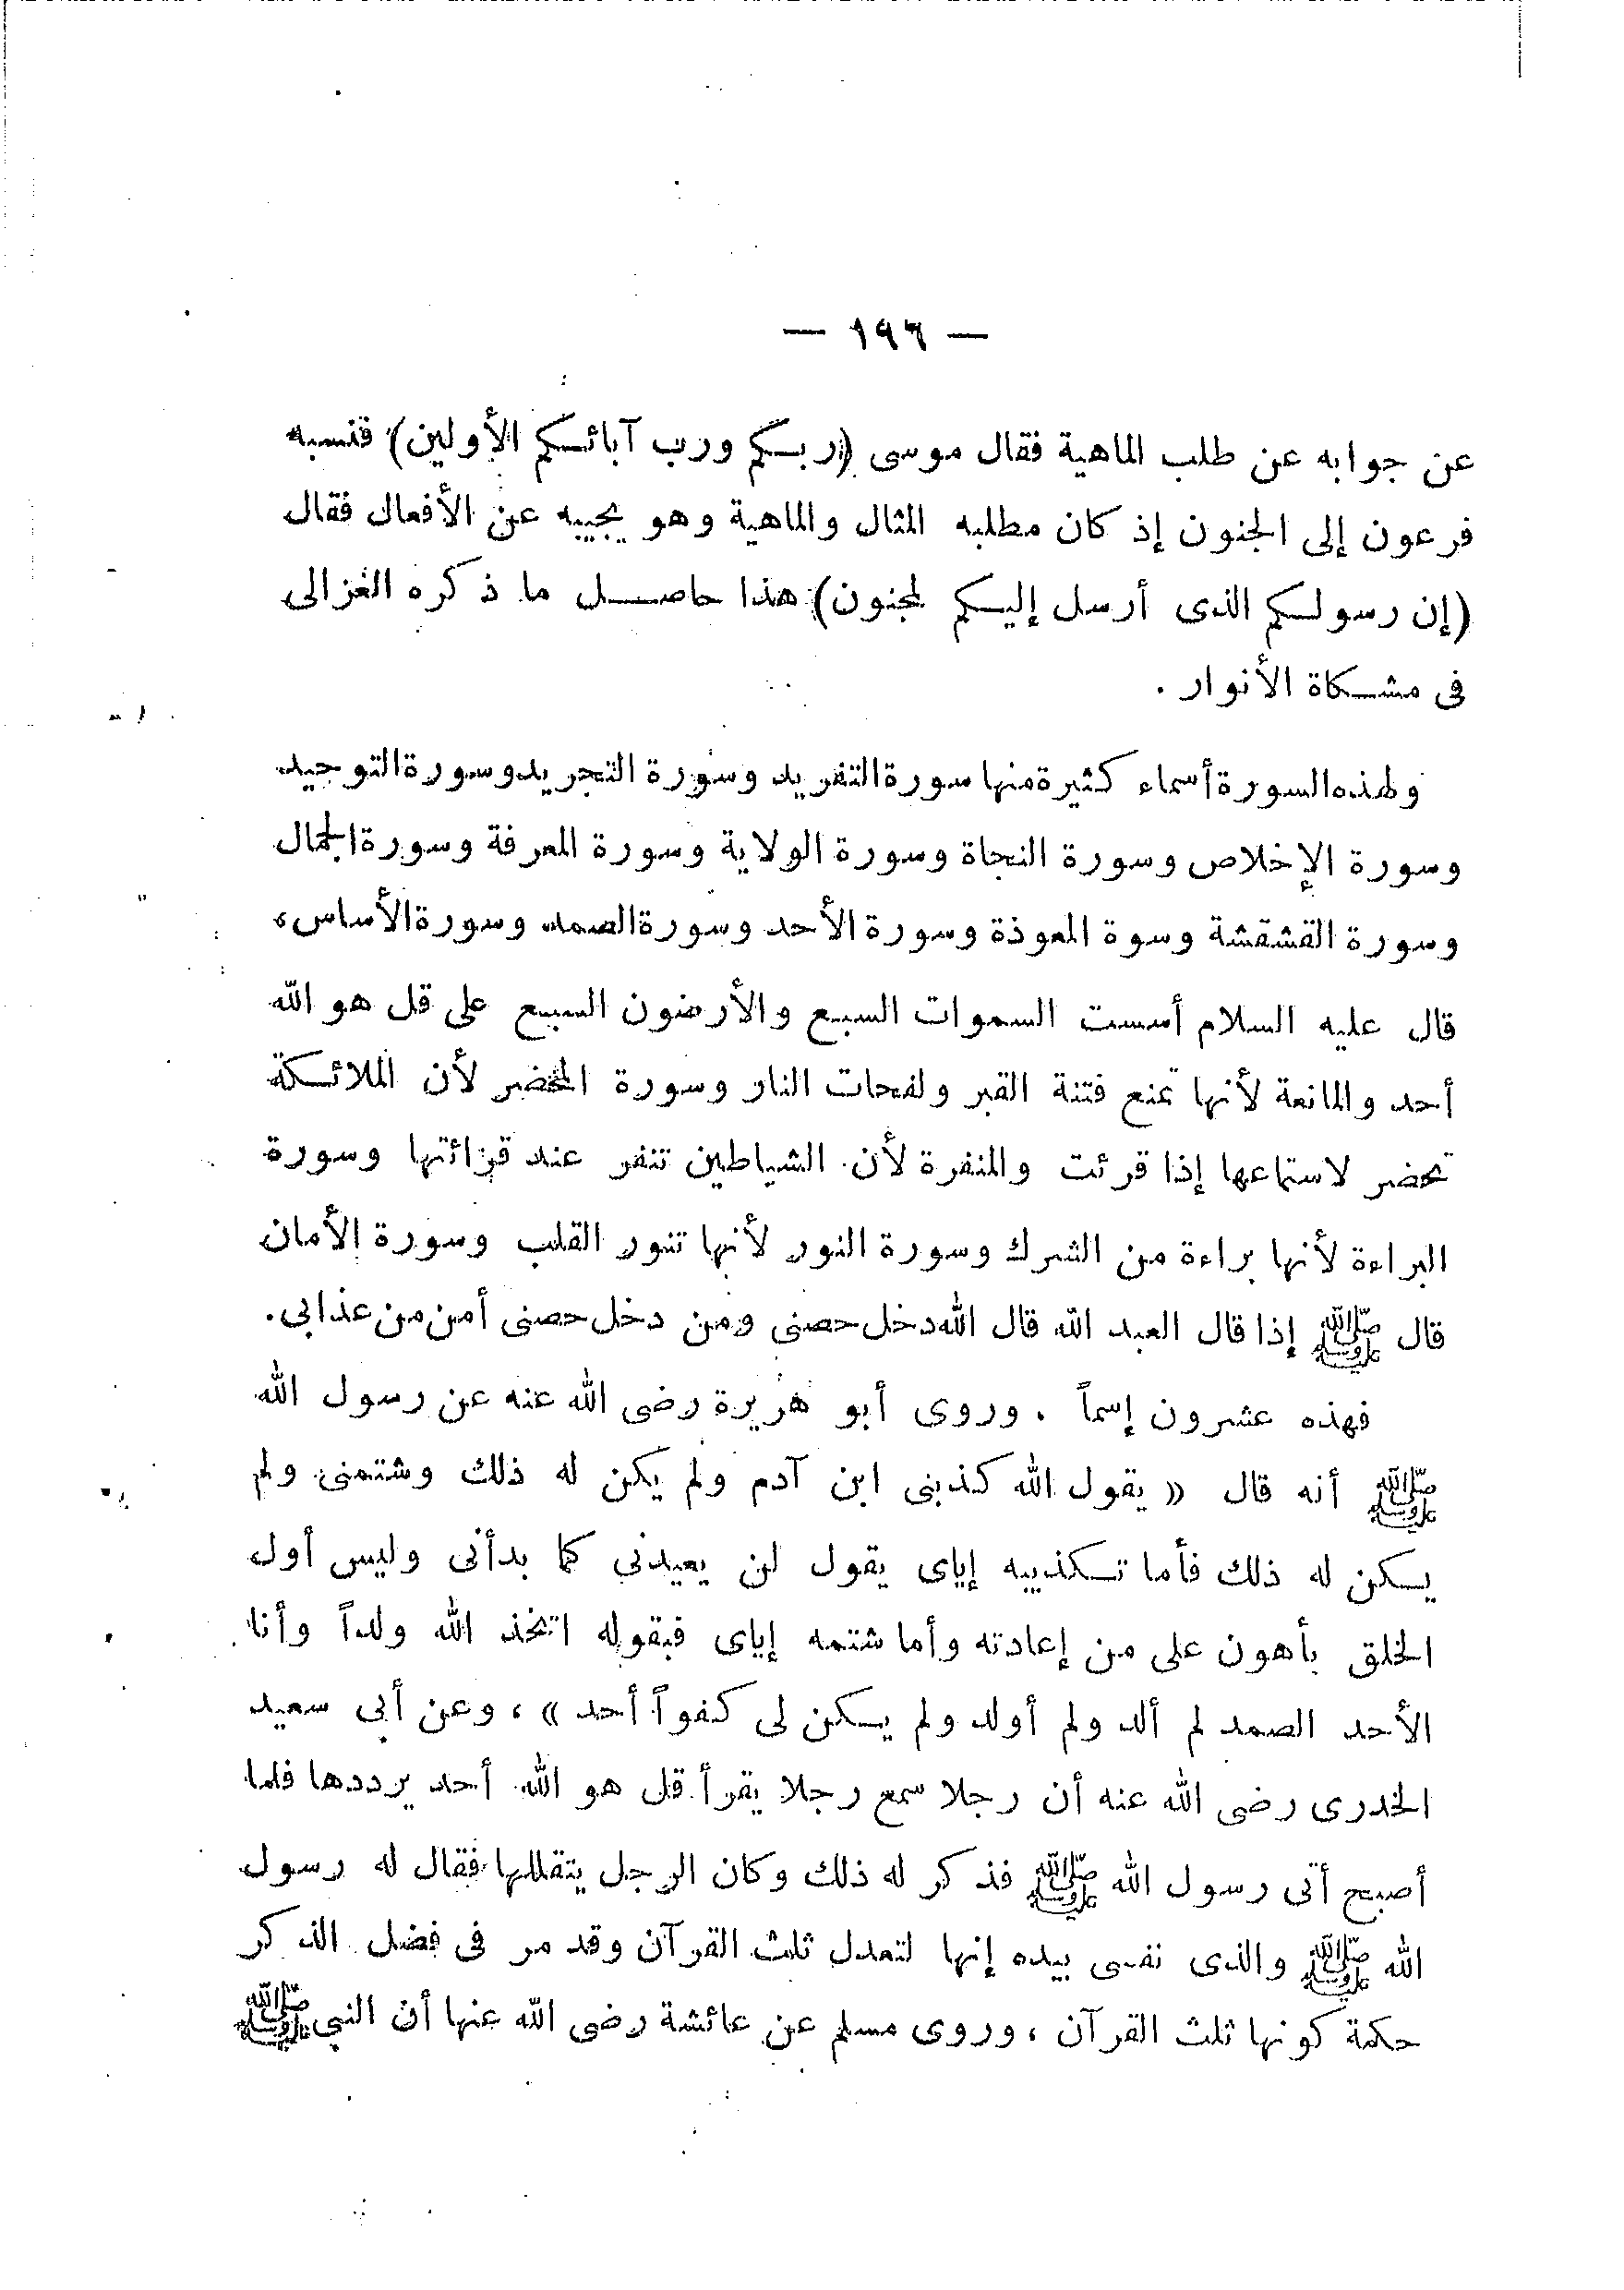 — ١٩٦ —
عن جوابه عن طلب الماهية فقال موسى (ربكم ورب آبائكم الأولين) فنسبه
فرعون إلى الجنون إذ كان مطلبه المثال والماهية وهو يجيبه عن الأفعال فقال
(إن رسولكم الذى أرسل إليكم لمجنون) هذا حاصل ما ذكره الغزالى
فى مشكاة الأنوار .
ولهذه السورة أسماء كثيرة منها سورة التفريد وسورة التجريد وسورة التوحيد
وسورة الإخلاص وسورة النجاة وسورة الولاية وسورة المعرفة وسورة الجمال
وسورة القشقشة وسوة المعوذة وسورة الأحد وسورة الصمد وسورة الأساس،
قال عليه السلام أسست السموات السبع والأرضون السبع على قل هو الله
أحد والمانعة لأنها تمنع فتنة القبر ولفحات النار وسورة المخضر لأن الملائكة
تحضر لاستماعها إذا قرئت والمنفرة لأن الشياطين تنفر عند قرائتها وسورة
البراءة لأنها براءة من الشرك وسورة النور لأنها تنور القلب وسورة الأمان
قال ﷺ إذا قال العبد الله قال الله دخل حصنى ومن دخل حصنى أمن من عذابى.
فهذه عشرون إسماً . وروى أبو هريرة رضى الله عنه عن رسول الله
ﷺ أنه قال « يقول الله كذبنى ابن آدم ولم يكن له ذلك وشتمنى ولم
يكن له ذلك فأما تكذيبه إياى يقول لن يعيدنى كما بدأنى وليس أول
الخلق بأهون على من إعادته وأما شتمه إياى فبقوله اتخذ الله ولداً وأنا
الأحد الصمد لم ألد ولم أولد ولم يكن لى كفواً أحد » ، وعن أبى سعيد
الخدرى رضى الله عنه أن رجلا سمع رجلا يقرأ قل هو الله أحد يرددها فلما
أصبح أتى رسول الله ﷺ فذكر له ذلك وكان الرجل يتقللها فقال له رسول
الله ﷺ والذى نفسى بيده إنها لتعدل ثلث القرآن وقد مر فى فضل الذكر
حكمة كونها ثلث القرآن ، وروى مسلم عن عائشة رضى الله عنها أن النبى ﷺ